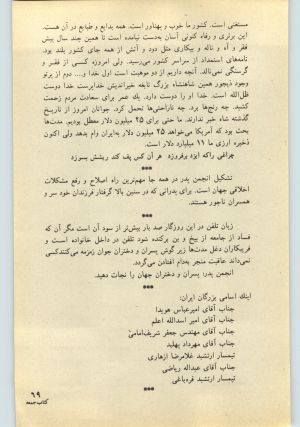 مستغنی است. کشور ما خوب و پهناور است. همه بدایع و طبایع در آن هست.
این برتری و رفاه کنونی آسان به‌دست نیامده است تا همین چند سال پیش
فقر و آه و ناله و بیکاری مثل دود و آتش از همه جای کشور بلند بود.
نامه‌های استمداد از سراسر کشور می‌رسید. ولی امروزه کسی از فقر و
گرسنگی نمی‌نالد. آنچه داریم از دو موهبت است اول خدا و... دوم از پرتو
وجود ذیجود همین شاهنشاه بزرگ نابغه خیراندیش خداپرست خدا دوست
ظل‌الله است. خدا او را دوست دارد. یک عمر برای سعادت مردم زحمت
کشید. چه رنج‌ها برد. چه ناراحتی‌ها تحمل کرد. جوانان امروز از تاریخ
گذشته شاه خبر ندارند. ما حتی برای ۲۵ میلیون دلار معطل بودیم. مدت‌ها
بحث بود که آمریکا می‌خواهد ۲۵ میلیون دلار به‌ایران وام بدهد ولی اکنون
ذخیره ارزی ما ۱۱ میلیارد دلار است.
چراغی راکه ایزد برفروزد هر آن کس پف کند ریشش بسوزد
***
تشکیل انجمن پدر در همه جا مهم‌ترین راه اصلاح و رفع مشکلات
اخلاقی جهان است. برای پدرانی که در سنین بالا گرفتار فرزندان خود سر و
همسران ناجور هستند.
***
زیان تلفن در این روزگار صد بار بیش‌تر از سود آن است مگر آن که
فساد از جامعه از بیخ و بن برکنده شود تلفن در داخل خانواده است و
فریبکاران دغل مدت‌ها زیر گوش پسران و دختران جوان زمزمه می‌کنندکسی
نمی‌داند عاقبت منجر به‌دام افتادن می‌گردد.
انجمن پدر، پسران و دختران جهان را نجات دهید.
***
اینک اسامی بزرگان ایران:
جناب آقای امیرعباس هویدا
جناب آقای امیر اسدالله اعلم
جناب آقای مهندس جعفر شریف‌امامی
جناب آقای مهرداد پهلبد
تیمسار ارتشبد غلامرضا ازهاری
جناب آقای عبداله ریاضی
تیمسار ارتشبد قره‌باغی
***
۶۹
کتاب جمعه